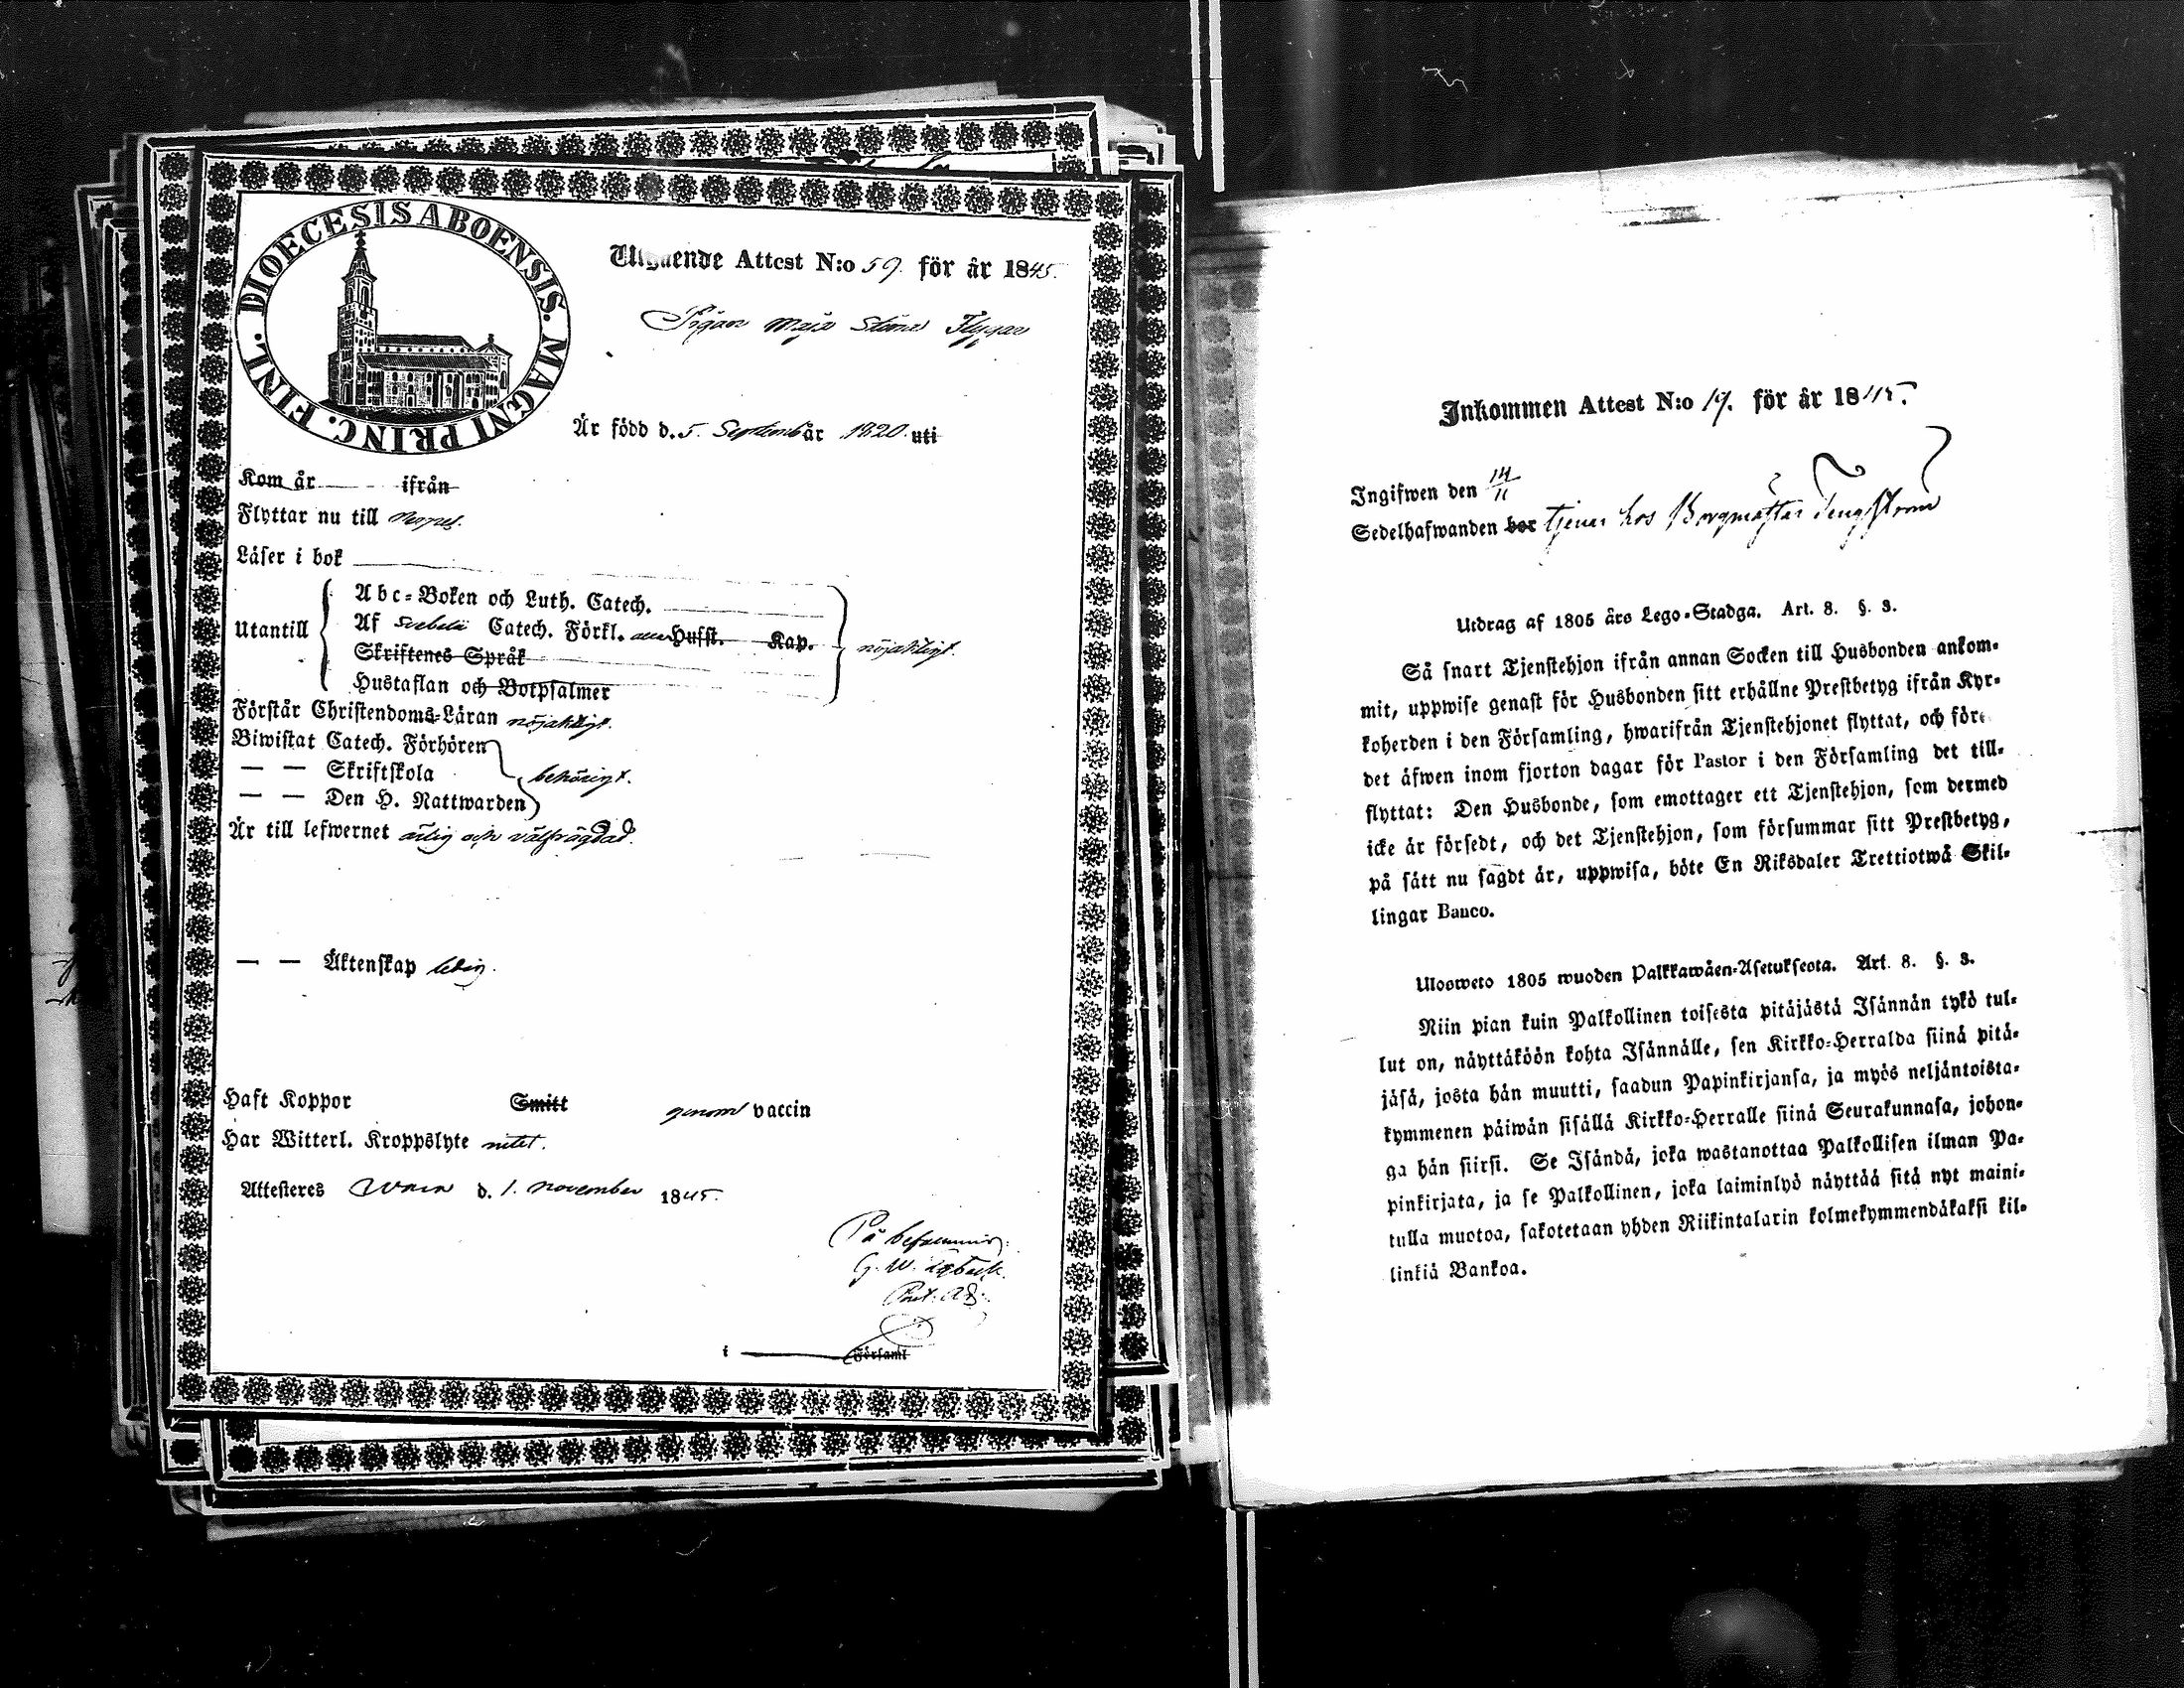 DIOECESIS ABOENSIS. MAGNI PRINC. FINL.
Utgående Attest N:o 59. för år 1845.
Pigan Maja Stina
Är född d. 5. September 1820. uti
Kom år ifrån
Flyttar nu till
Läser i bok
Utantill
Abc-Boken och Luth. Catech.
Af Svebelii Catech. Förkl. Husst. Kap.
Skriftenes Språk
Hustaflan och Botpsalmer
nöjaktigt.
Förstår Christendoms-Läran nöjaktigt.
Biwistat Catech. Förhören
— — Skriftskola
— — Den H. Nattwarden
behörigt.
Är till lefwernet ärlig och välfrägdad.
— — Äktenskap ledig.
Haft Koppor Smitt genom vaccin
Har Witterl. Kroppslyte intet.
Attesteres d. 1. november 1845.
På befallning:
G. W.
i Församl
Inkommen Attest N:o 19. för år 1845.
Ingifwen den 14/11
Sedelhafwanden bor tjenar hos Borgmästar Tengström
Utdrag af 1805 års Lego-Stadga. Art. 8. §. 3.
Så snart Tjenstehjon ifrån annan Socken till Husbonden ankom-
mit, uppwise genast för Husbonden sitt erhållne Prestbetyg ifrån Kyr-
koherden i den Församling, hwarifrån Tjenstehjonet flyttat, och före
det äfwen inom fjorton dagar för Pastor i den Församling det till-
flyttat: Den Husbonde, som emottager ett Tjenstehjon, som dermed
icke är försedt, och det Tjenstehjon, som försummar sitt Prestbetyg,
på sätt nu sagdt är, uppwisa, böte En Riksdaler Trettiotwå Skil-
lingar Banco.
Ulosweto 1805 wuoden Palkkawäen-Asetuksesta. Art. 8. §. 3.
Niin pian kuin Palkollinen toisesta pitäjästä Isännän tykö tul-
lut on, näyttäköön kohta Isännälle, sen Kirkko-Herralda siinä pitä-
jäsä, josta hän muutti, saadun Papinkirjansa, ja myös neljäntoista-
kymmenen päiwän sisällä Kirkko-Herralle siinä Seurakunnasa, johon-
ga hän siirsi. Se Isändä, joka wastanottaa Palkollisen ilman Pa-
pinkirjata, ja se Palkollinen, joka laiminlyö näyttää sitä nyt maini-
tulla muotoa, sakotetaan yhden Riikintalarin kolmekymmendäkaksi kil-
linkiä Bankoa.